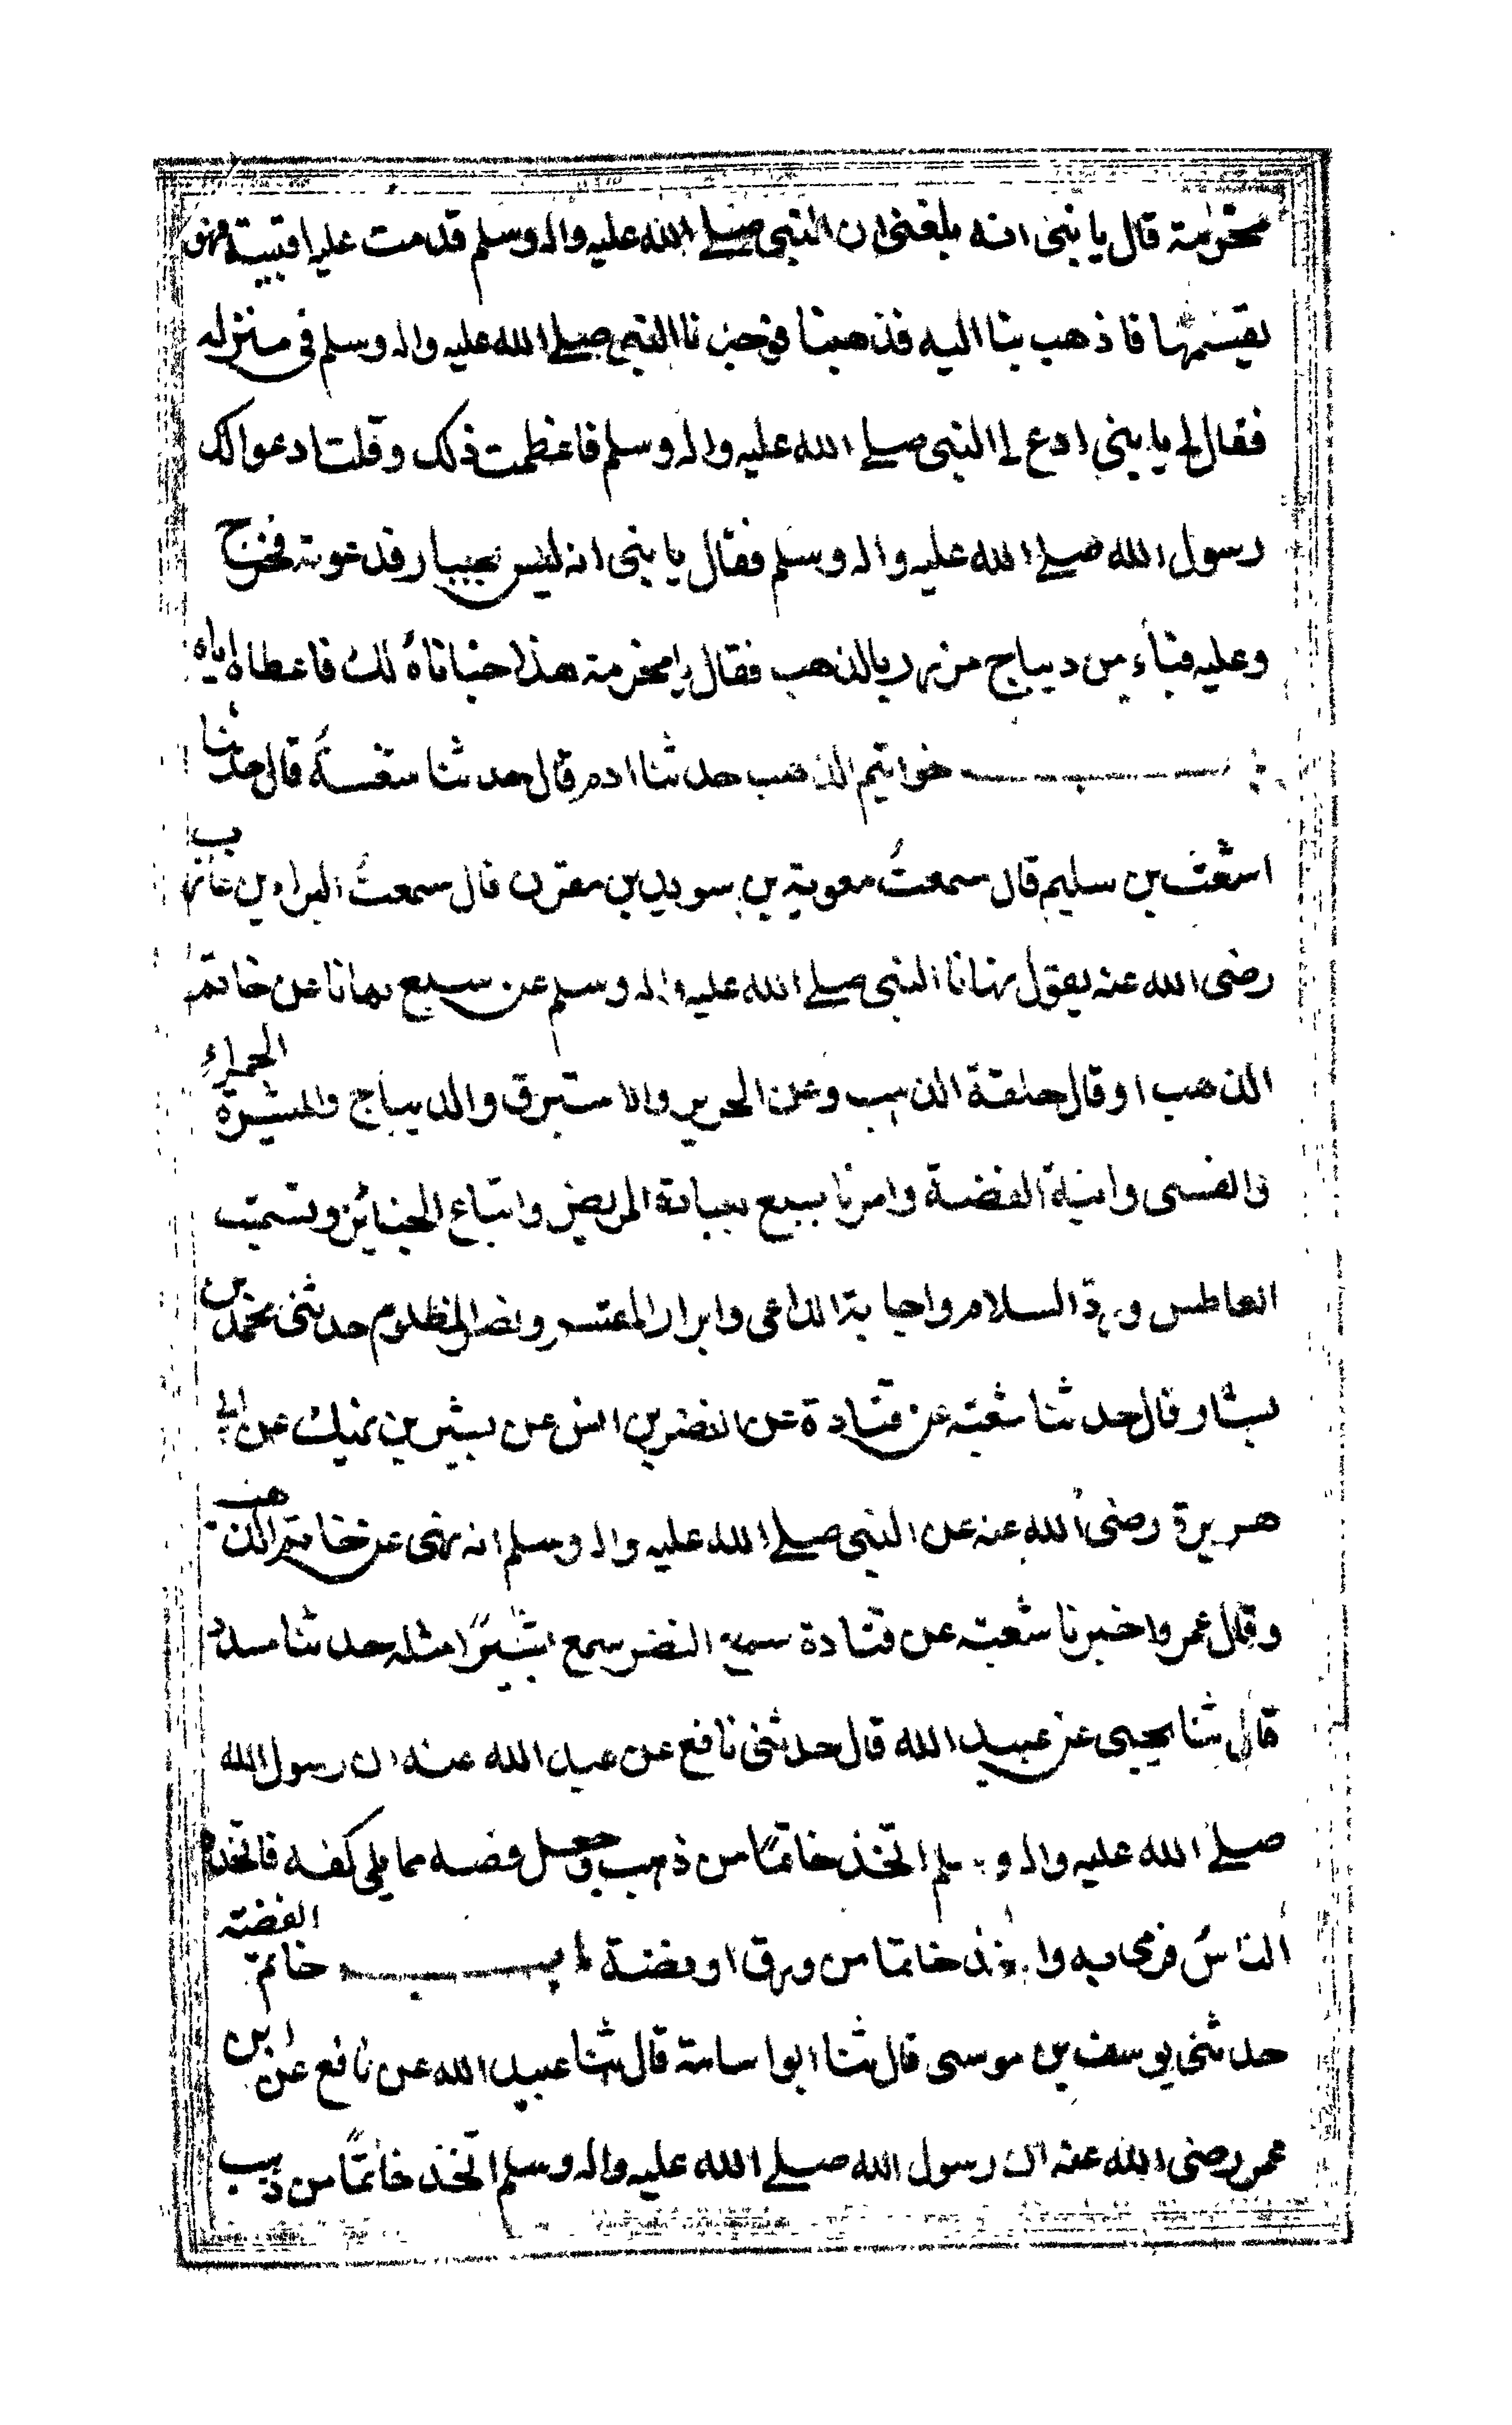 مخرمة قال يا بنى انه بلغنى ان النبى صلے الله عليه واله وسلم قدمت عليه اقبية فهو
يقسمها فاذهب بنا اليه فذهبنا فوجدنا النبى صلے الله عليه واله وسلم فى منزله
فقال لى يا بنى ادع لى النبى صلے الله عليه واله وسلم فاعظمت ذلک وقلت ادعو الک
رسول الله صلے الله عليه واله وسلم فقال يا بنى انه ليس بجبار فدعوته فخرج
وعليه قباء من ديباج مزرر بالذهب فقال يا مخرمة هذا خبأناه لك فاعطاه اياه
باب خواتيم الذهب حدثنا ادم قال حدثنا شعبة قال حدثنا
اشعث بن سليم قال سمعت معوية بن سويد بن مقرن قال سمعت البراء بن عازب
رضى الله عنه يقول نهانا النبى صلے الله عليه واله وسلم عن سبع نهانا عن خاتم
الذهب او قال حلقة الذهب وعن الحرير والاستبرق والديباج والميثرة الحمراء
والقسى وانية الفضة وامرنا بسبع بعيادة المريض واتباع الجنائز وتشميت
العاطس ورد السلام واجابة الداعى وابرار المقسم ونصر المظلوم حدثنى محمد بن
بشار قال حدثنا شعبة عن قتادة عن النضر بن انس عن بشير بن نهيك عن ابى
هريرة رضى الله عنه عن النبى صلے الله عليه واله وسلم انه نهى عن خاتم الذهب
وقال عمرو اخبرنا شعبة عن قتادة سمع النضر سمع بشيرًا مثله حدثنا مسدد
قال ثنا يحيى عن عبيد الله قال حدثنى نافع عن عبد الله عنه ان رسول الله
صلے الله عليه واله وسلم اتخذ خاتمًا من ذهب وجعل فصه مما يلى كفه فاتخذه
الناسُ فرمى به واتخذ خاتما من ورق او فضة باب خاتم الفضة
حدثنى يوسف بن موسى قال ثنا ابو اسامة قال ثنا عبيد الله عن نافع عن ابن
عمر رضى الله عنه ان رسول الله صلے الله عليه واله وسلم اتخذ خاتمًا من ذهب